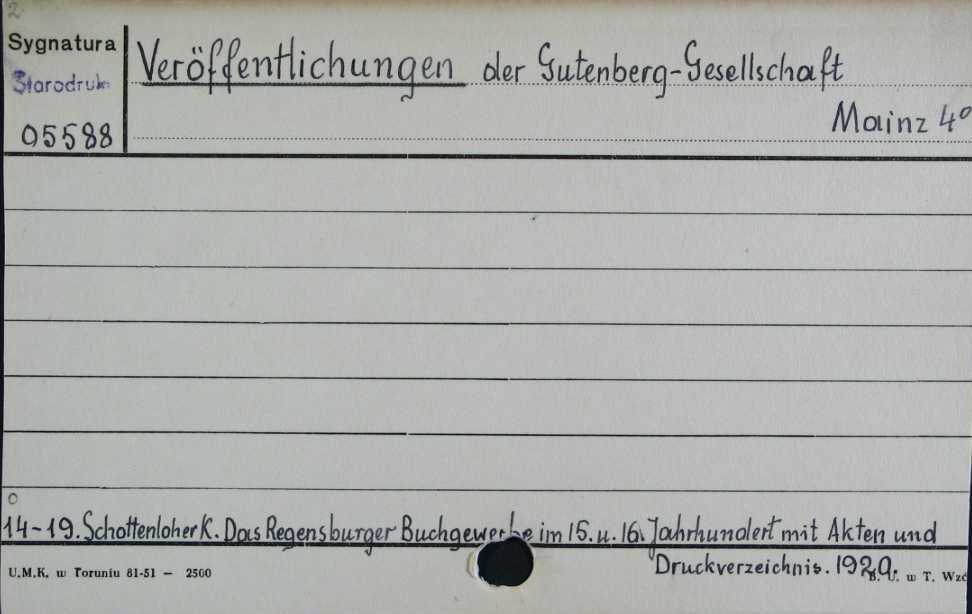 2
Sygnatura
Starodruk
05588
Veröffentlichungen der Gutenberg-Gesellschaft
Mainz 4°
0
14-19. Schottenloher K. Das Regensburger Buchgewerbe im 15. u. 16. Jahrhundert mit Akten und
Druckverzeichnis. 1920.
U.M.K. w Toruniu 81-51 — 2500
B. U. w T. Wzó